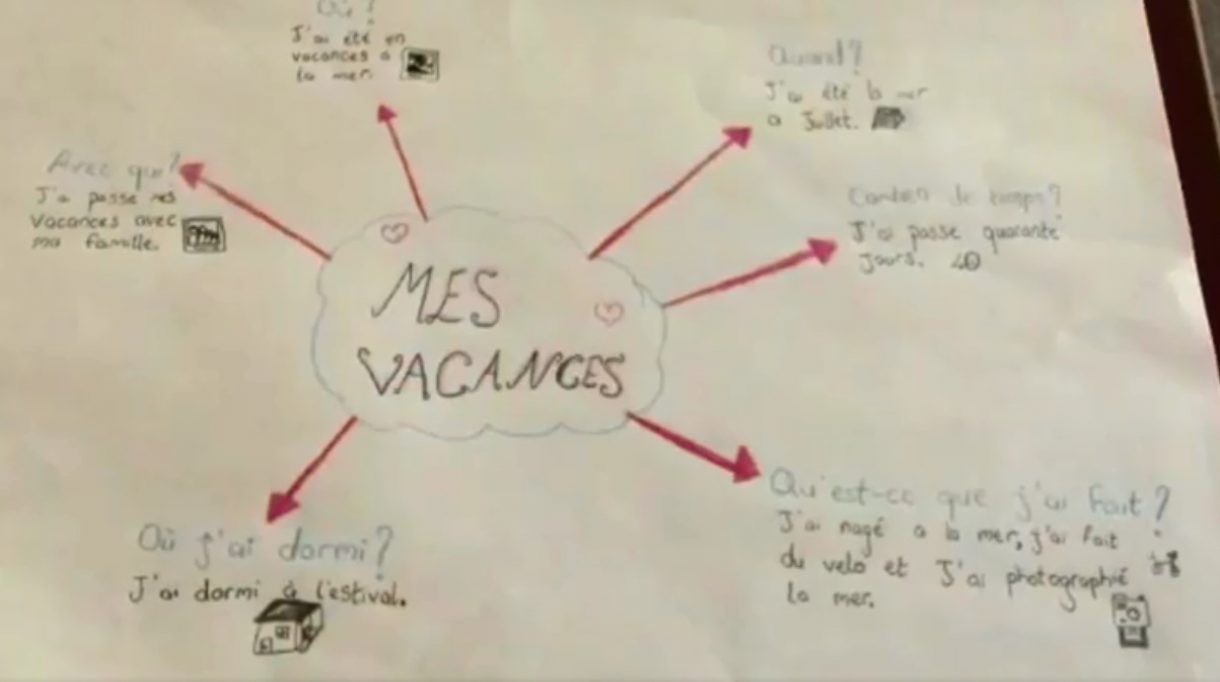 Où ?
J'ai été en
vacances a
la mer.
Quand?
J'ai été la mer
a Juillet.
Avec qui?
J'a passe mes
vacances avec
ma famille.
Combien de temps?
J'ai passe quarante
jours. 40
MES
VACANCES
Où j'ai dormi?
J'ai dormi à l'estival.
Qu'est-ce que j'ai fait?
J'ai nagé a la mer, j'ai fait
du velo et J'ai photographié
la mer.